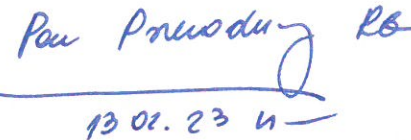 Pan Przewodniczący RG
13 02. 23